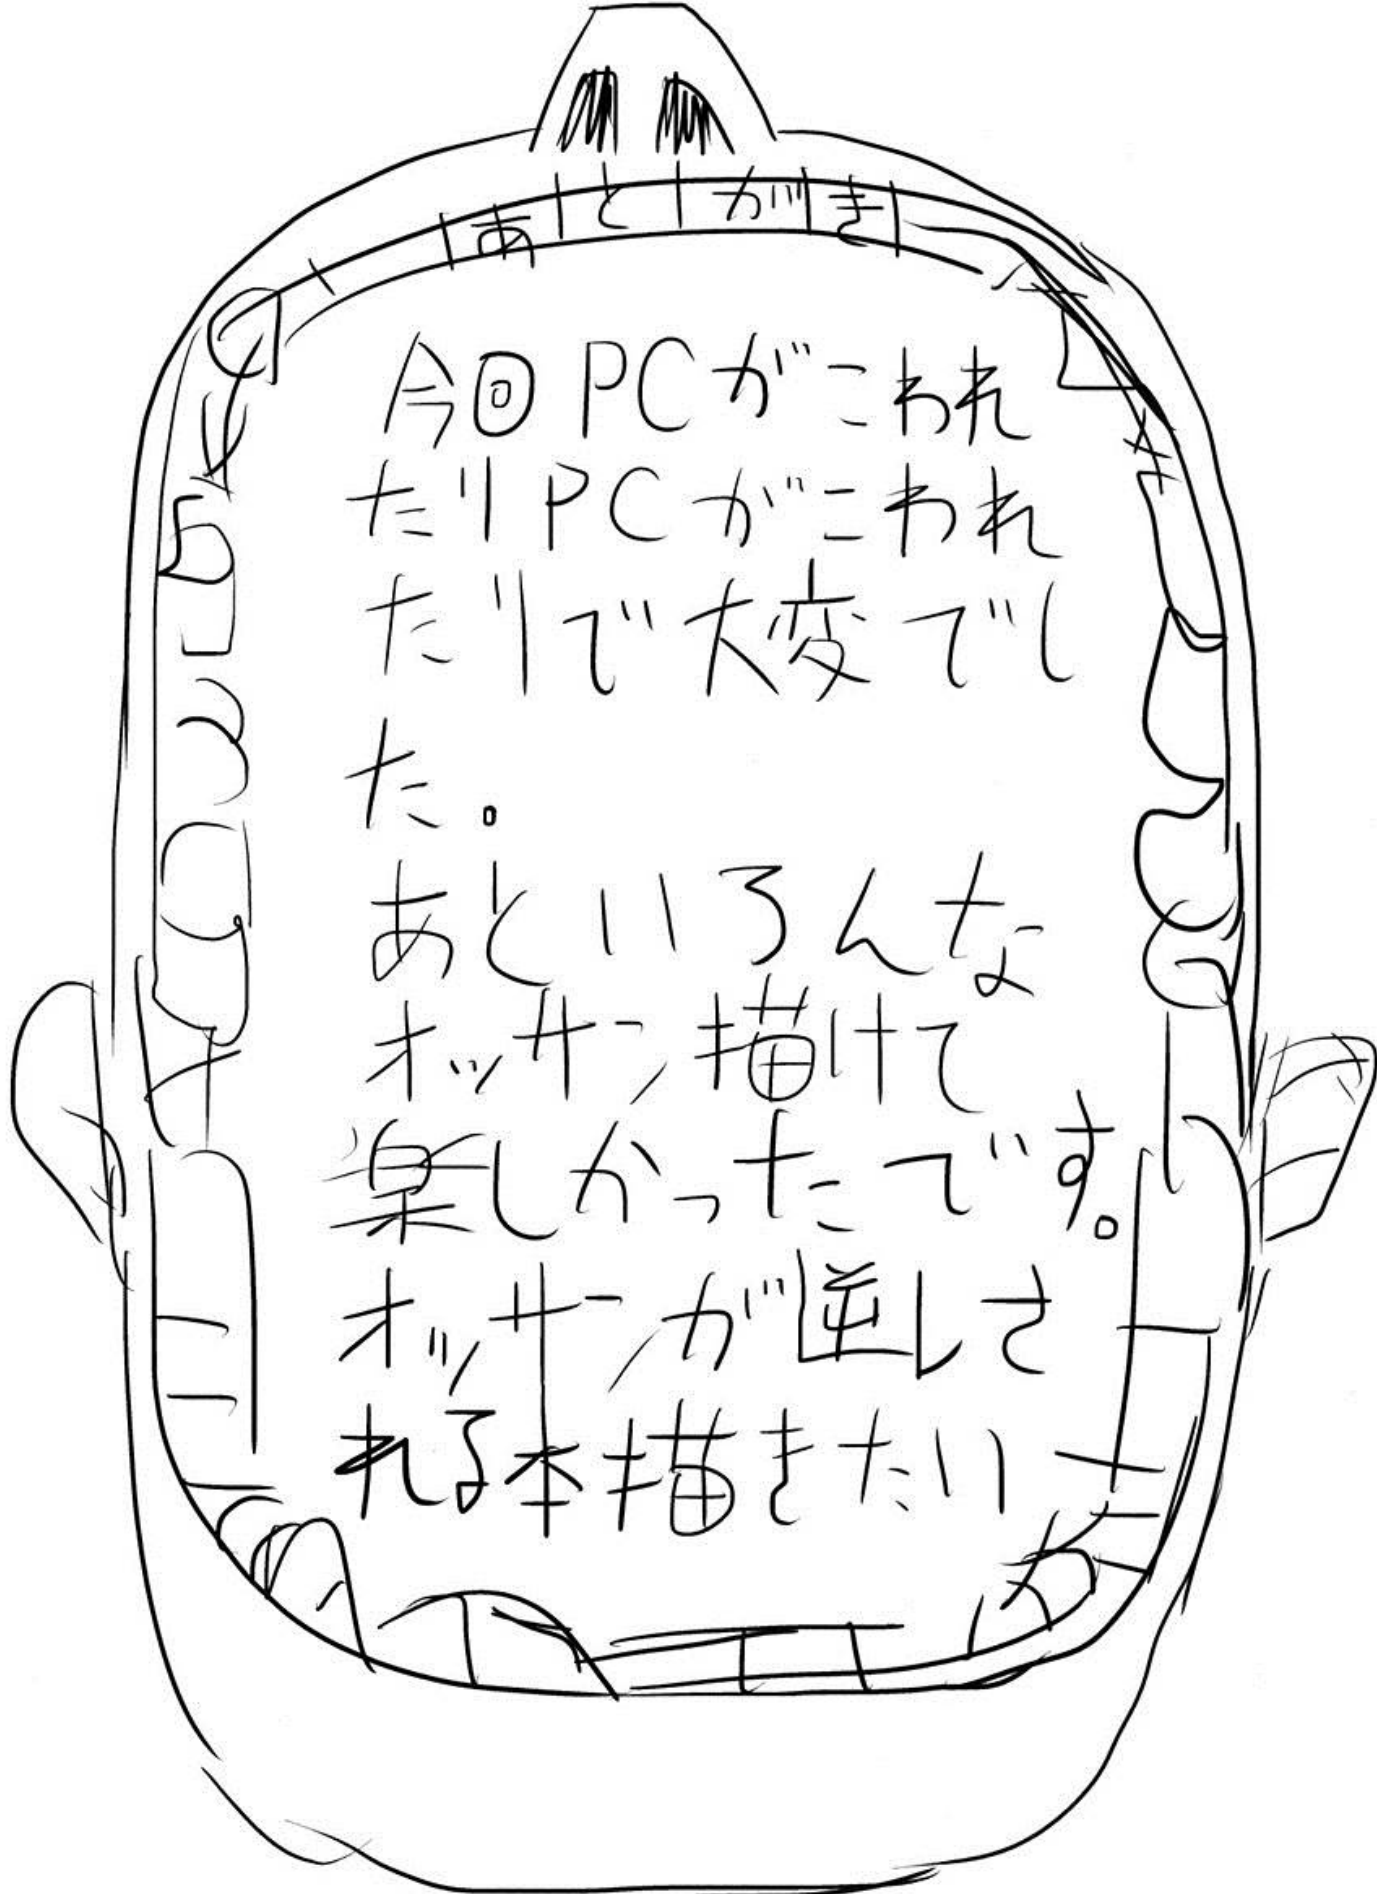 あとがき
今回PCがこわれ
たりPCがこわれ
たりで大変でし
た。
あといろんな
オッサン描けて
楽しかったです。
オッサンが逆しさ
れる本描きたい